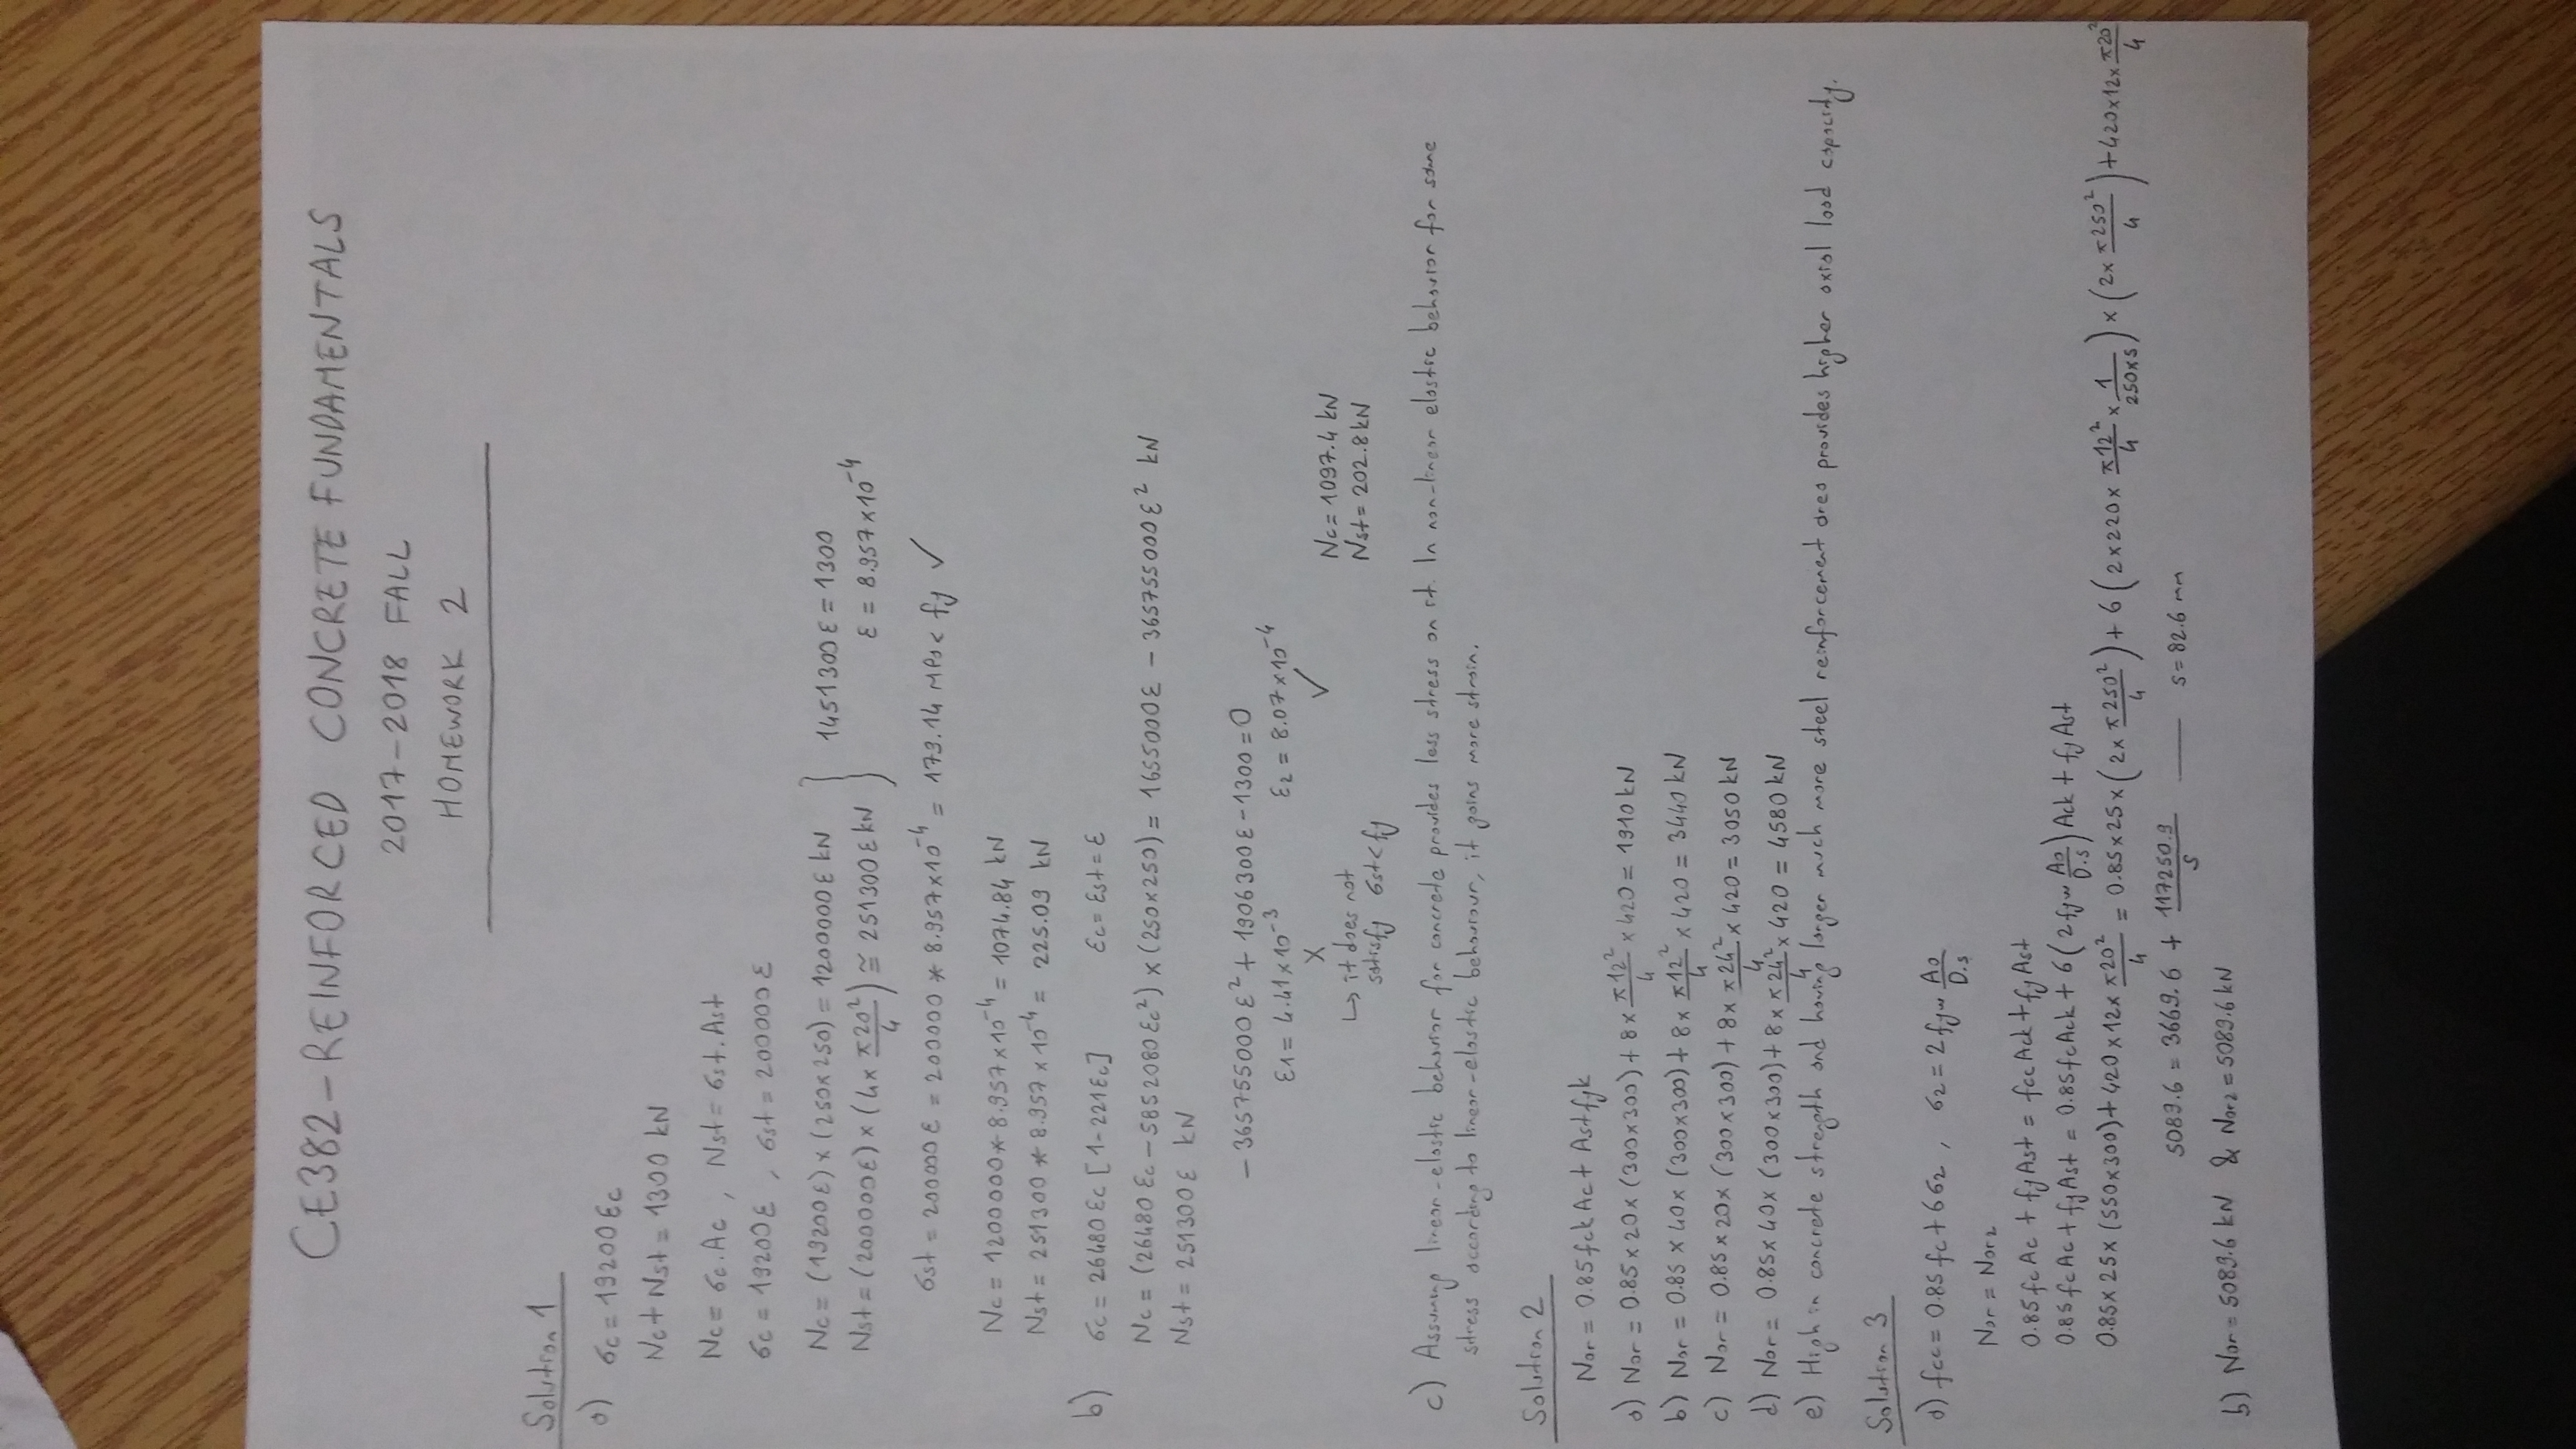 CE382-REINFORCED CONCRETE FUNDAMENTALS
2017-2018 FALL
HOMEWORK 2
Solution 1
a) σc = 19200 Ɛc
Nc + Nst = 1300 kN
Nc = σc.Ac , Nst = σst.Ast
σc = 19200Ɛ , σst = 200000 Ɛ
Nc = (19200Ɛ) x (250x250) = 1200000Ɛ kN
Nst = (200000Ɛ) x (4x π20²/4) ≅ 251300Ɛ kN
1451300Ɛ = 1300
Ɛ = 8.957x10⁻⁴
σst = 200000Ɛ = 200000 * 8.957x10⁻⁴ = 179.14 MPa < fy ✓
Nc = 1200000*8.957x10⁻⁴ = 1074.84 kN
Nst = 251300 * 8.957x10⁻⁴ = 225.09 kN
b) σc = 26480 Ɛc [1-221Ɛc] Ɛc = Ɛst = Ɛ
Nc = (26480 Ɛc - 5852080 Ɛc²) x (250x250) = 1655000Ɛ - 365755000Ɛ² kN
Nst = 251300Ɛ kN
- 365755000 Ɛ² + 1906300Ɛ - 1300 = 0
Ɛ1 = 4.41x10⁻³ Ɛ2 = 8.07x10⁻⁴
X ✓
↳ it does not
satisfy σst < fy
Nc = 1097.4 kN
Nst = 202.8 kN
c) Assuming linear-elastic behavior for concrete provides less stress on it. In non-linear elastic behavior for same
stress according to linear-elastic behaviour, it gains more strain.
Solution 2
Nor = 0.85 fck Ac + Ast fyk
a) Nor = 0.85x20x (300x300) + 8x π12²/4 x 420 = 1910 kN
b) Nor = 0.85 x 40x (300x300) + 8x π12²/4 x 420 = 3440 kN
c) Nor = 0.85x20x (300x300) + 8x π24²/4 x 420 = 3050 kN
d) Nor = 0.85x40x (300x300) + 8x π24²/4 x 420 = 4580 kN
e) High in concrete strength and having larger much more steel reinforcement area provides higher axial load capacity.
Solution 3
a) fcc = 0.85 fc + 6σ2 , σ2 = 2 fyw Ao/D.s
Nor = Nor2
0.85 fc Ac + fy Ast = fcc Ack + fy Ast
0.85 fc Ac + fy Ast = 0.85 fc Ack + 6 (2 fyw Ao/D.s) Ack + fy Ast
0.85x 25x (550x300) + 420x12x π20²/4 = 0.85x25x (2x π250²/4) + 6 (2x220x π12²/4 x 1/250xs) x (2x π250²/4) + 420x12x π20²/4
5089.6 = 3669.6 + 117250.9/s — s = 82.6 mm
b) Nor = 5089.6 kN & Nor2 = 5089.6 kN